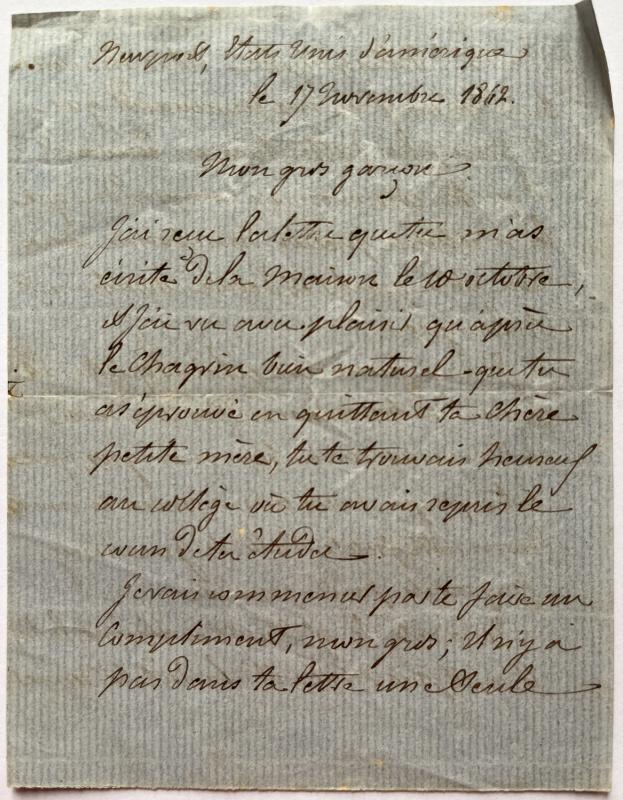 Newport, Etats Unis d'amérique
le 17 Novembre 1862.
Mon gros garçon
J'ai reçu la lettre que tu m'as
écrite de la maison le 10 octobre,
et j'ai vu avec plaisir qu'après
le chagrin bien naturel que tu
as éprouvé en quittant ta chère
petite mère, tu te trouvais heureux
au collège où tu avais repris le
cours de tes études.
Je vais commencer par te faire un
compliment, mon gros; il n'y a
pas dans ta lettre une seule